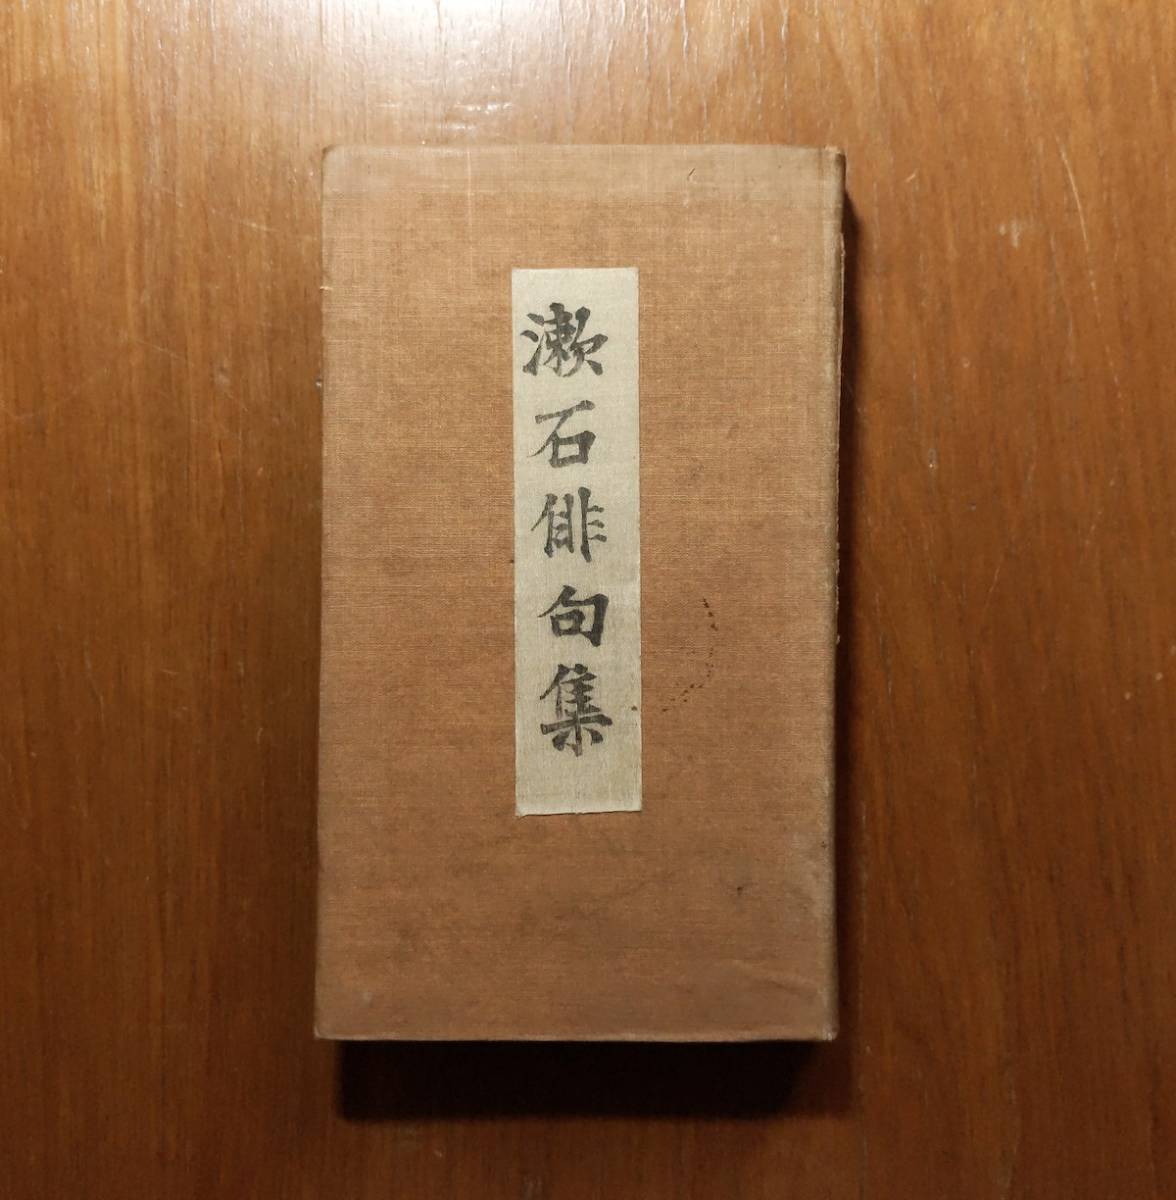 漱石俳句集